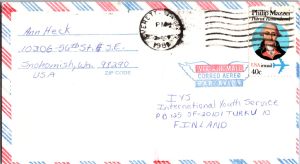 Ann Heck
10306-56th St. S.E.
Snohomish, Wa. 98290
USA
ZIP CODE
EVERETT, WA
PM
1981
Philip Mazzei
Patriot Remembered
USAirmail
40c
VIA AIR MAIL
CORREO AEREO
PAR AVION
IYS
International Youth Service
PO 125 SF-20101 TURKU 10
FINLAND